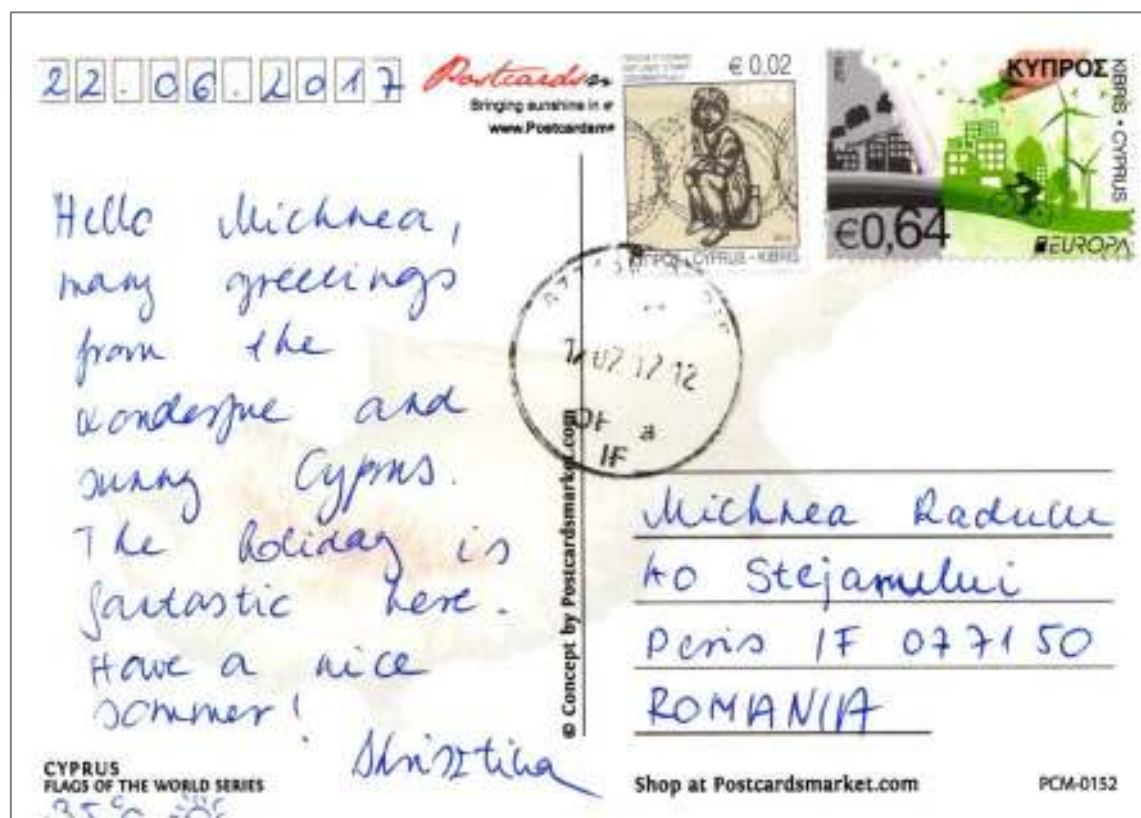 22.06.2017
Postcards
Bringing sunshine in
www.Postcardsm
€ 0.02
1974
CYPRUS - KIBRIS
ΚΥΠΡΟΣ
KIBRIS • CYPRUS
€0,64
EUROPA
Hello Michnea,
many greetings
from the
wonderfue and
sunny Cyprus.
The holiday is
fantastic here.
Have a nice
sommer!
Krisztina
35°C
07 17 12
OF a
IF
© Concept by Postcardsmarket.com
Michnea Raducu
40 Stejarului
Peris IF 077150
ROMANIA
CYPRUS
FLAGS OF THE WORLD SERIES
Shop at Postcardsmarket.com
PCM-0152